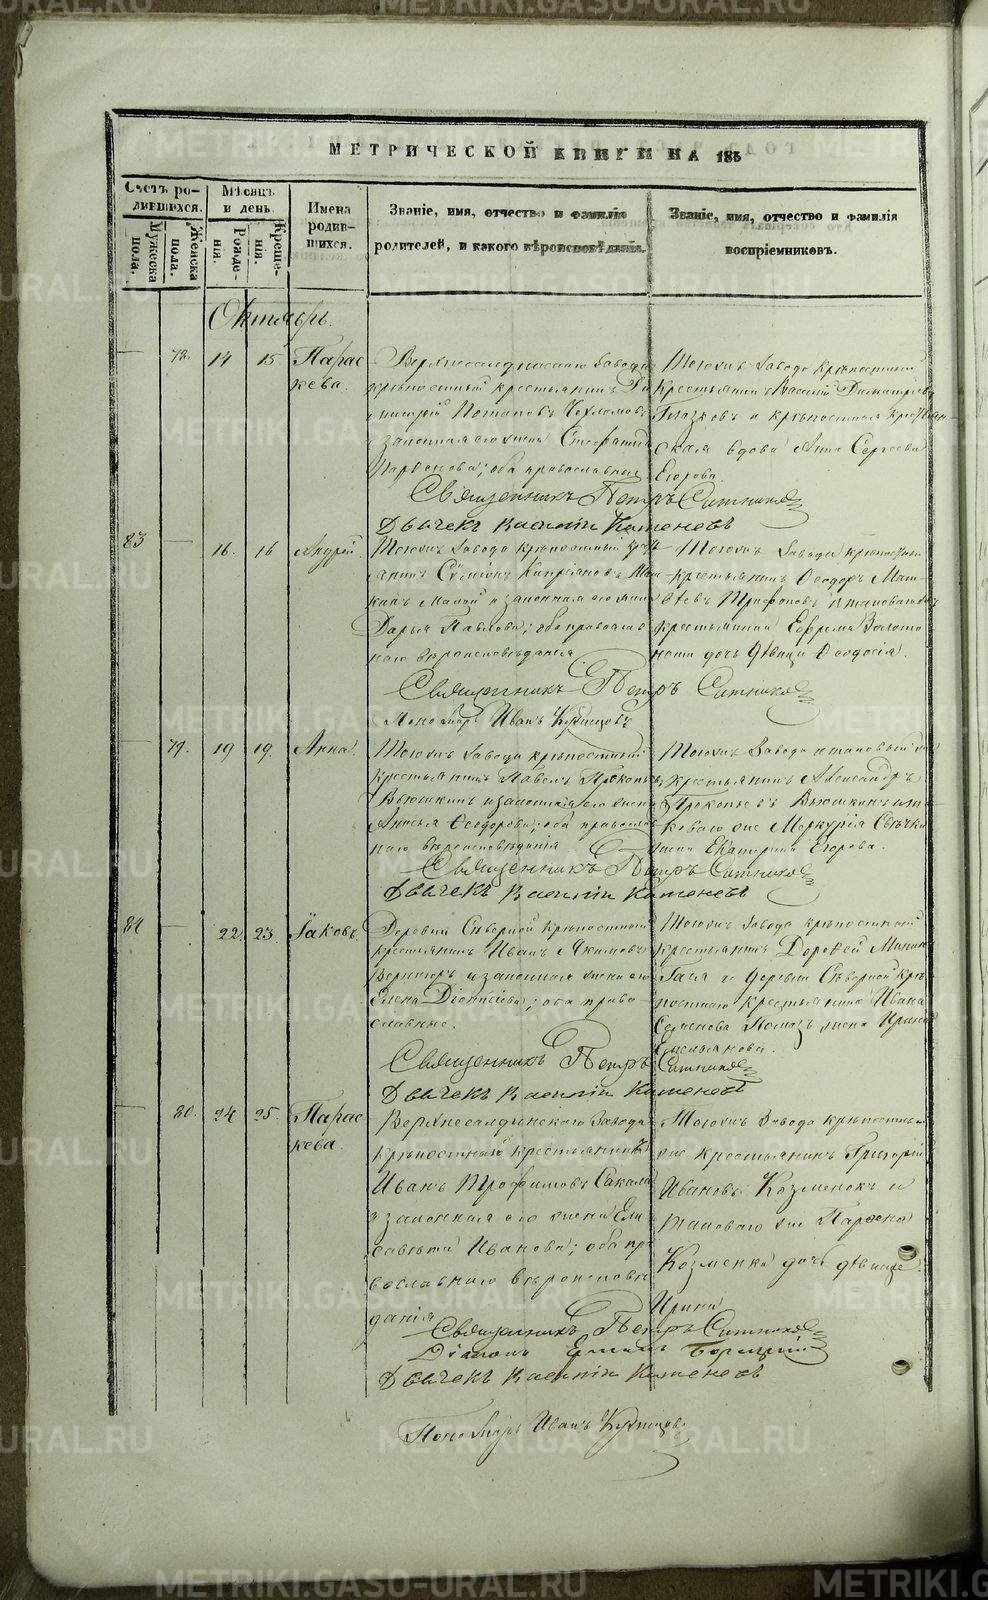 МЕТРИЧЕСКОЙ КНИГИ НА 185
Счетъ родившихся.
Мужеска пола.
Женска пола.
Мѣсяцъ и день
Рожденія.
Крещенія.
Имена родившихся.
Званіе, имя, отчество и фамилія
родителей, и какого вѣроисповѣданія.
Званіе, имя, отчество и фамилія
воспріемниковъ.
Октябрь.
78. 14 15. Парас
кева.
Верхнесалдинскаго завода
крѣпостный крестьянинъ Ди
митрій Потаповъ
и законная его жена
оба православные
Тогожъ завода крѣпостный
крестьянинъ Василій Димитріевъ
Глазковъ и крѣпостная крестьян-
ская вдова Анна Сергеева
Егорова.
Священникъ Петръ Ситниковъ
Дьячекъ Василій Каменевъ
83 16. 16 Андрей
Тогожъ завода крѣпостный крест
янинъ Сѵмеонъ Кипріяновъ
и законная его жена
Дарья Павлова; оба православ
наго вѣроисповѣданія
Тогожъ завода крѣпостный
крестьянинъ Ѳеодоръ Мат-
вѣевъ Трифоновъ и таковагожъ
крестьянина Ефрема Золото
дочь дѣвица Ѳеодосія.
Священникъ Петръ Ситниковъ
Пономарь Иванъ Кузнецовъ
79. 19 19. Анна.
Тогожъ завода крѣпостный
крестьянинъ Павелъ Прокопьевъ
Вьюшкинъ и законная его жена
Анисья Ѳеодорова; оба православ
наго вѣроисповѣданія
Тогожъ завода и таковый же
крестьянинъ Александръ
Прокопьевъ Вьюшкинъ и та-
коваго же Меркурія
жена Екатерина Егорова.
Священникъ Петръ Ситниковъ
Дьячекъ Василій Каменевъ
84 22. 23. Іаковъ.
Деревни Сѣверной крѣпостный
крестьянинъ Иванъ Якимовъ
и законная жена его
Елена Діонисіева; оба право-
славные.
Тогожъ завода крѣпостной
крестьянинъ Дороѳей Мининъ
и деревни Сѣверной крѣ
постнаго крестьянина Ивана
Семенова жена Ирина
Емельянова.
Священникъ Петръ Ситниковъ
Дьячекъ Василій Каменевъ
80. 24 25. Парас
кева.
Верхнесалдинскаго завода
крѣпостный крестьянинъ
Иванъ Трофимовъ
и законная его жена Ели
савета Иванова; оба пра
вославнаго вѣроисповѣ
данія
Тогожъ завода крѣпостный
же крестьянинъ Григорій
Ивановъ Козменокъ и
таковаго же Парѳена
Козменка дочь дѣвица
Ирина
Священникъ Петръ Ситниковъ
Діаконъ
Дьячекъ Василій Каменевъ
Пономарь Иванъ Кузнецовъ
METRIKI.GASO-URAL.RU